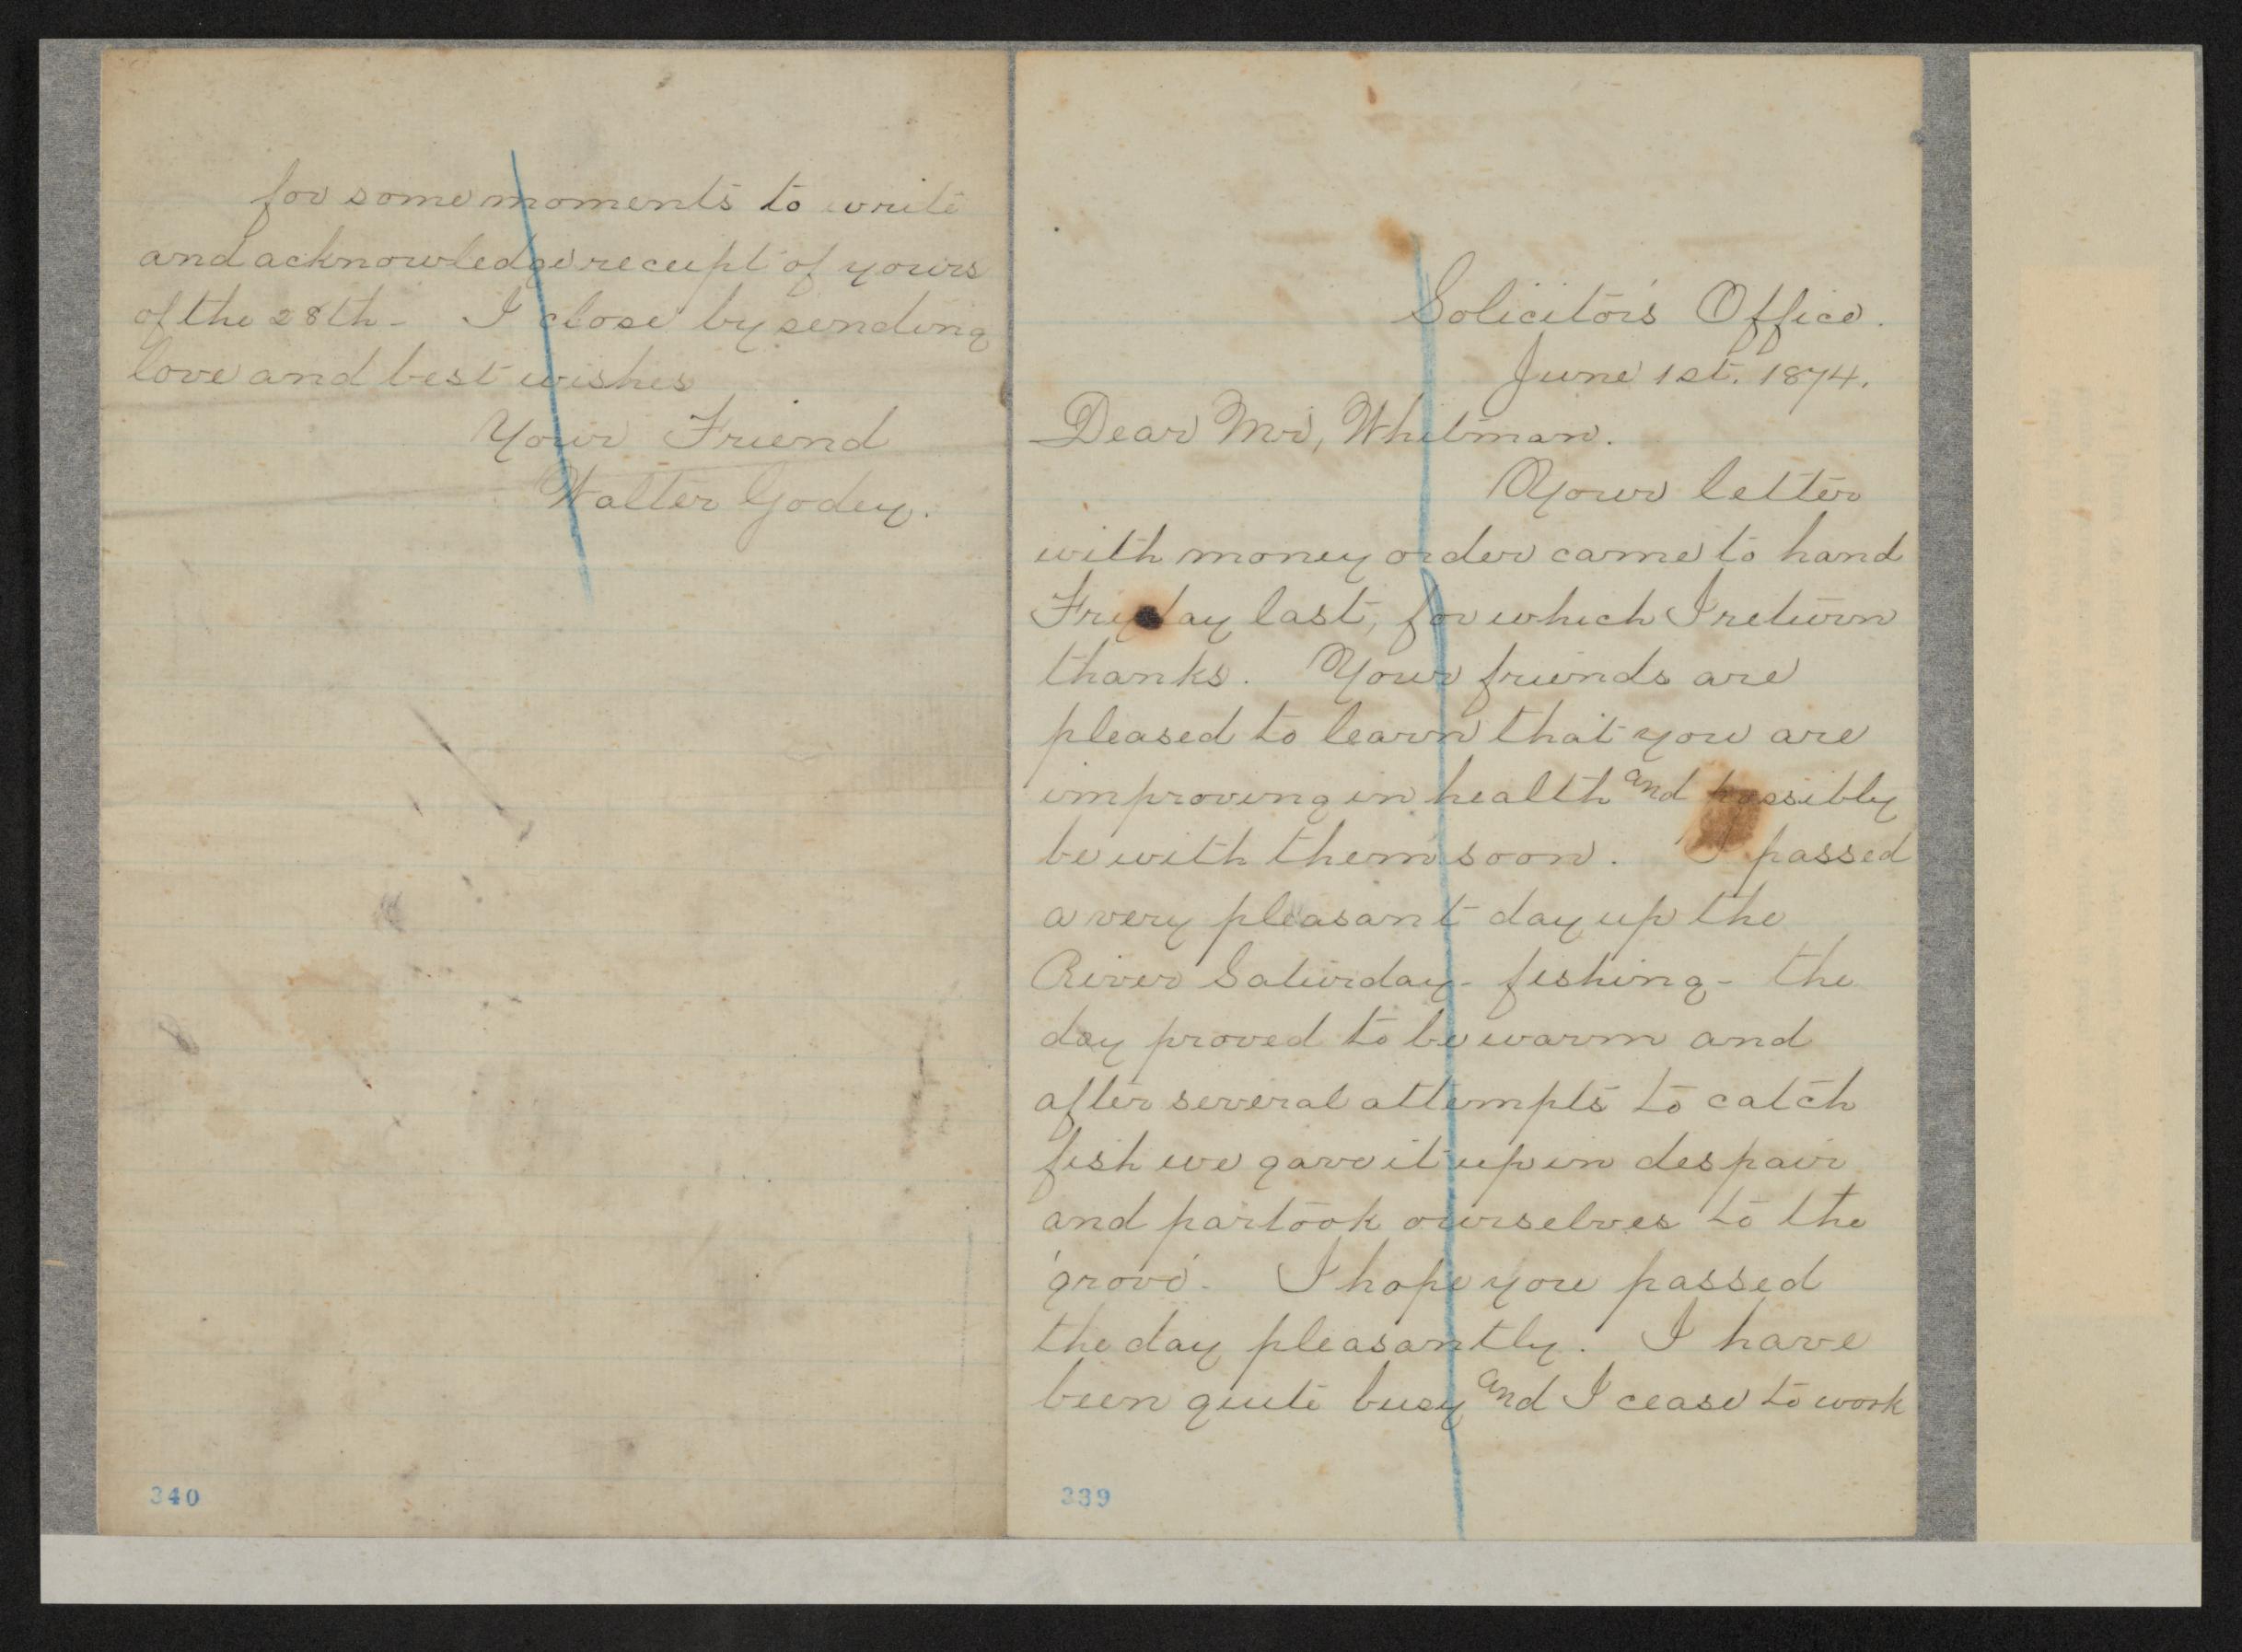 Solicitor's Office.
June 1st. 1874.
Dear Mr, Whitman.
Your letter
with money order came to hand
Friday last, for which I return
thanks. Your friends are
pleased to learn that you are
improving in health and possibly
be with them soon. I passed
a very pleasant day up the
River Saturday - fishing - the
day proved to be warm and
after several attempts to catch
fish we gave it up in despair
and partook ourselves to the
'grove'. I hope you passed
the day pleasantly. I have
been quite busy and I cease to work
339
for some moments to write
and acknowledge receipt of yours
of the 28th - I close by sending
love and best wishes
Your Friend
Walter Godey.
340